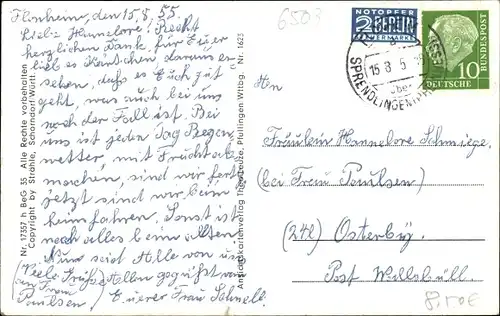 Flonheim, den 15.8.55.
Liebe Hannelore! Recht
herzlichen Dank, für Euer
lieb es Kärtchen daraus er-
sehen, daß es Euch gut
geht, was auch bei uns
noch der Fall ist. Bei
uns ist jeden Tag Regen,
wetter, mit Frucht
machen, sind wir fertig
jetzt sind wir beim
heimfahren. Sonst ist
noch alles beim alten
Nun seid Alle von uns
(Viele Grüße Allen gegrüßt von
an Frau
Paulsen) Eurer Frau Schnell.
Nr. 17357 h BeG 35 Alle Rechte vorbehalten
Copyright by Strähle, Schorndorf/Württ.
Ansichtskartenverlag Pfullingen/Wttbg. Nr. 1625
6503
NOTOPFER
2 BERLIN
STEUERMARKE
15.8.5
SPRENDLINGEN
DEUTSCHE BUNDESPOST
10
An
Fräulein Hannelore Schmiege
(bei Frau Paulsen)
(24b) Osterby.
Post Wallsbüll.
8,50€